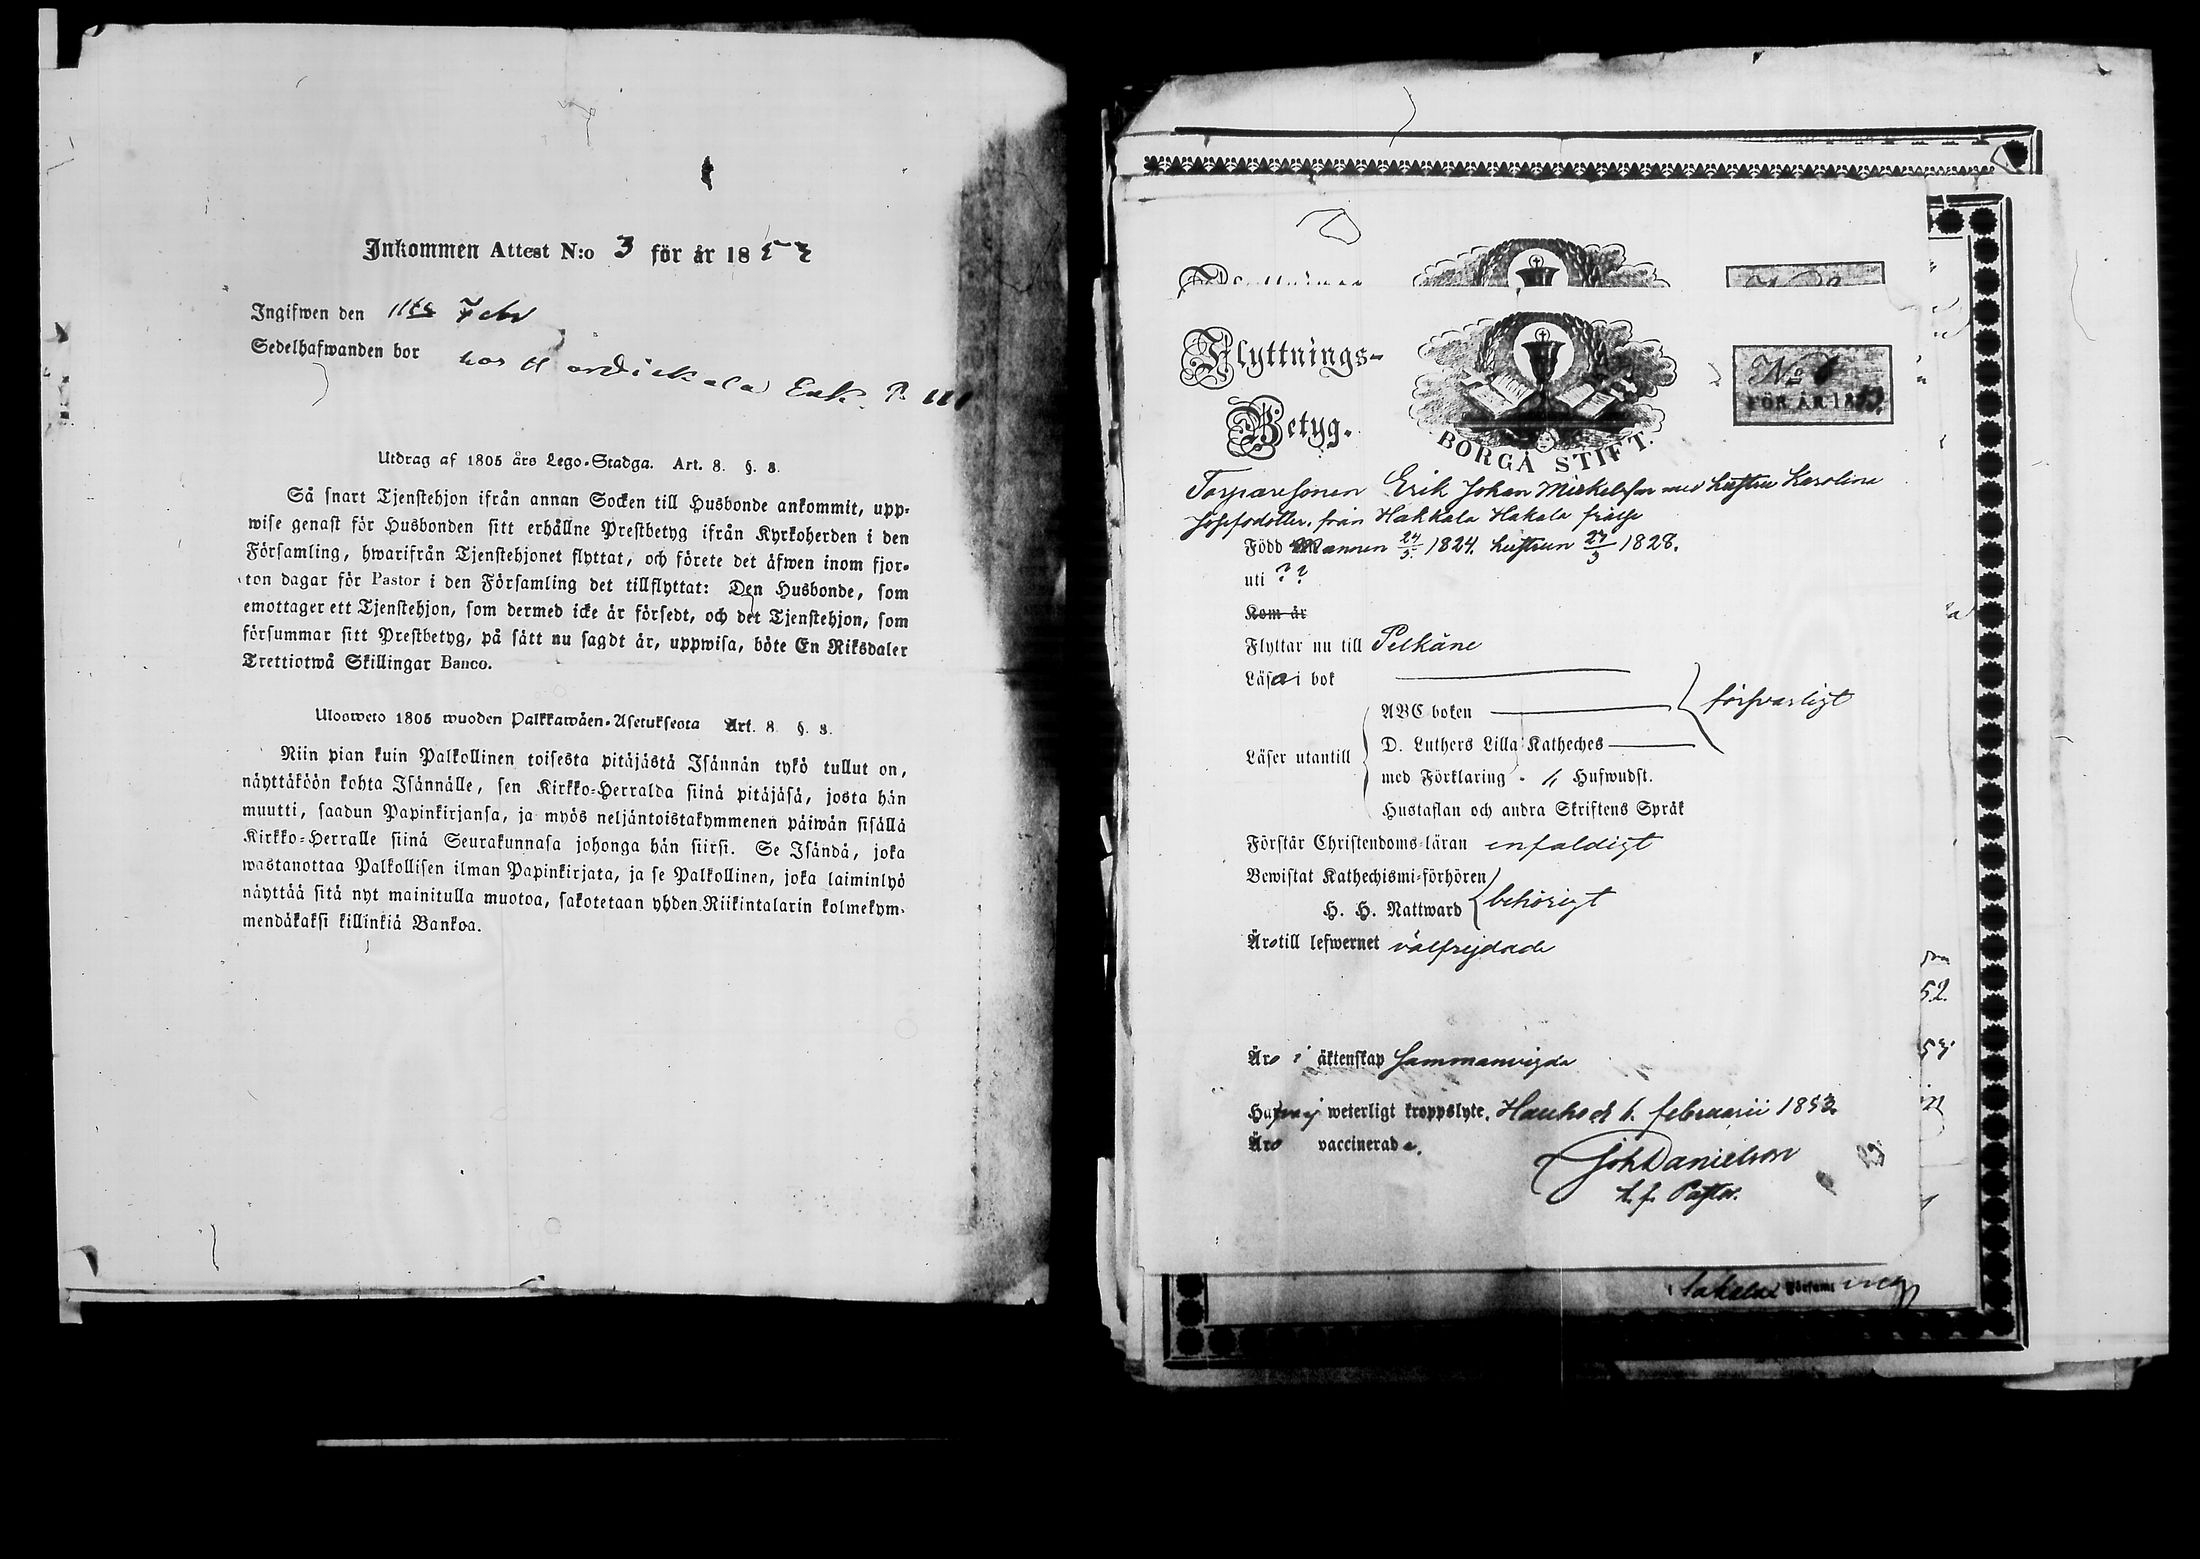 Inkommen Attest N:o 3 för år 1852
Ingifwen den 11te Febr
Sedelhafwanden bor hos
Utdrag af 1805 års Lego-Stadga. Art. 8. §. 8.
Så snart Tjenstehjon ifrån annan Socken till Husbonde ankommit, upp-
wise genast för Husbonden sitt erhållne Prestbetyg ifrån Kyrkoherden i den
Församling, hwarifrån Tjenstehjonet flyttat, och förete det äfwen inom fjor-
ton dagar för Pastor i den Församling det tillflyttat: Den Husbonde, som
emottager ett Tjenstehjon, som dermed icke är försedt, och det Tjenstehjon, som
försummar sitt Prestbetyg, på sätt nu sagdt är, uppwisa, böte En Riksdaler
Trettiotwå Skillingar Banco.
Ulosweto 1805 wuoden Palkkawäen-Asetuksesta Art. 8 §. 8.
Niin pian kuin Palkollinen toisesta pitäjästä Isännän tykö tullut on,
näyttäköön kohta Isännälle, sen Kirkko-Herralda siinä pitäjäsä, josta hän
muutti, saadun Papinkirjansa, ja myös neljäntoistakymmenen päiwän sisällä
Kirkko-Herralle siinä Seurakunnasa johonga hän siirsi. Se Isändä, joka
wastanottaa Palkollisen ilman Papinkirjata, ja se Palkollinen, joka laiminlyö
näyttää sitä nyt mainitulla muotoa, sakotetaan yhden Riikintalarin kolmekym-
mendäkaksi killinkiä Bankoa.
Flyttnings-
Betyg.
BORGÅ STIFT.
No
FÖR ÅR 18
Torparesonen Erik Johan Mickelsson med hustru Karolina
Josefsdotter, från Hakkala Hakala frälse
Född Mannen 24/5. 1824. hustrun 27/3 1828.
uti ? ?
Kom år
Flyttar nu till Pelkäne
Läsa i bok
ABC boken
försvarligt
D. Luthers Lilla Katheches
Läser utantill
med Förklaring Hufwudst.
Hustaflan och andra Skriftens Språk
Förstår Christendoms-läran enfaldigt
Bewistat Kathechismi-förhören
behörigt
H. H. Nattward
Äro till lefwernet välfrejdade
Äro i äktenskap sammanvigda
weterligt kroppslyte. Hauho d. 6. februarii 1852.
Äro vaccinerade.
Joh Danielson
t. f. Pastor.
52.